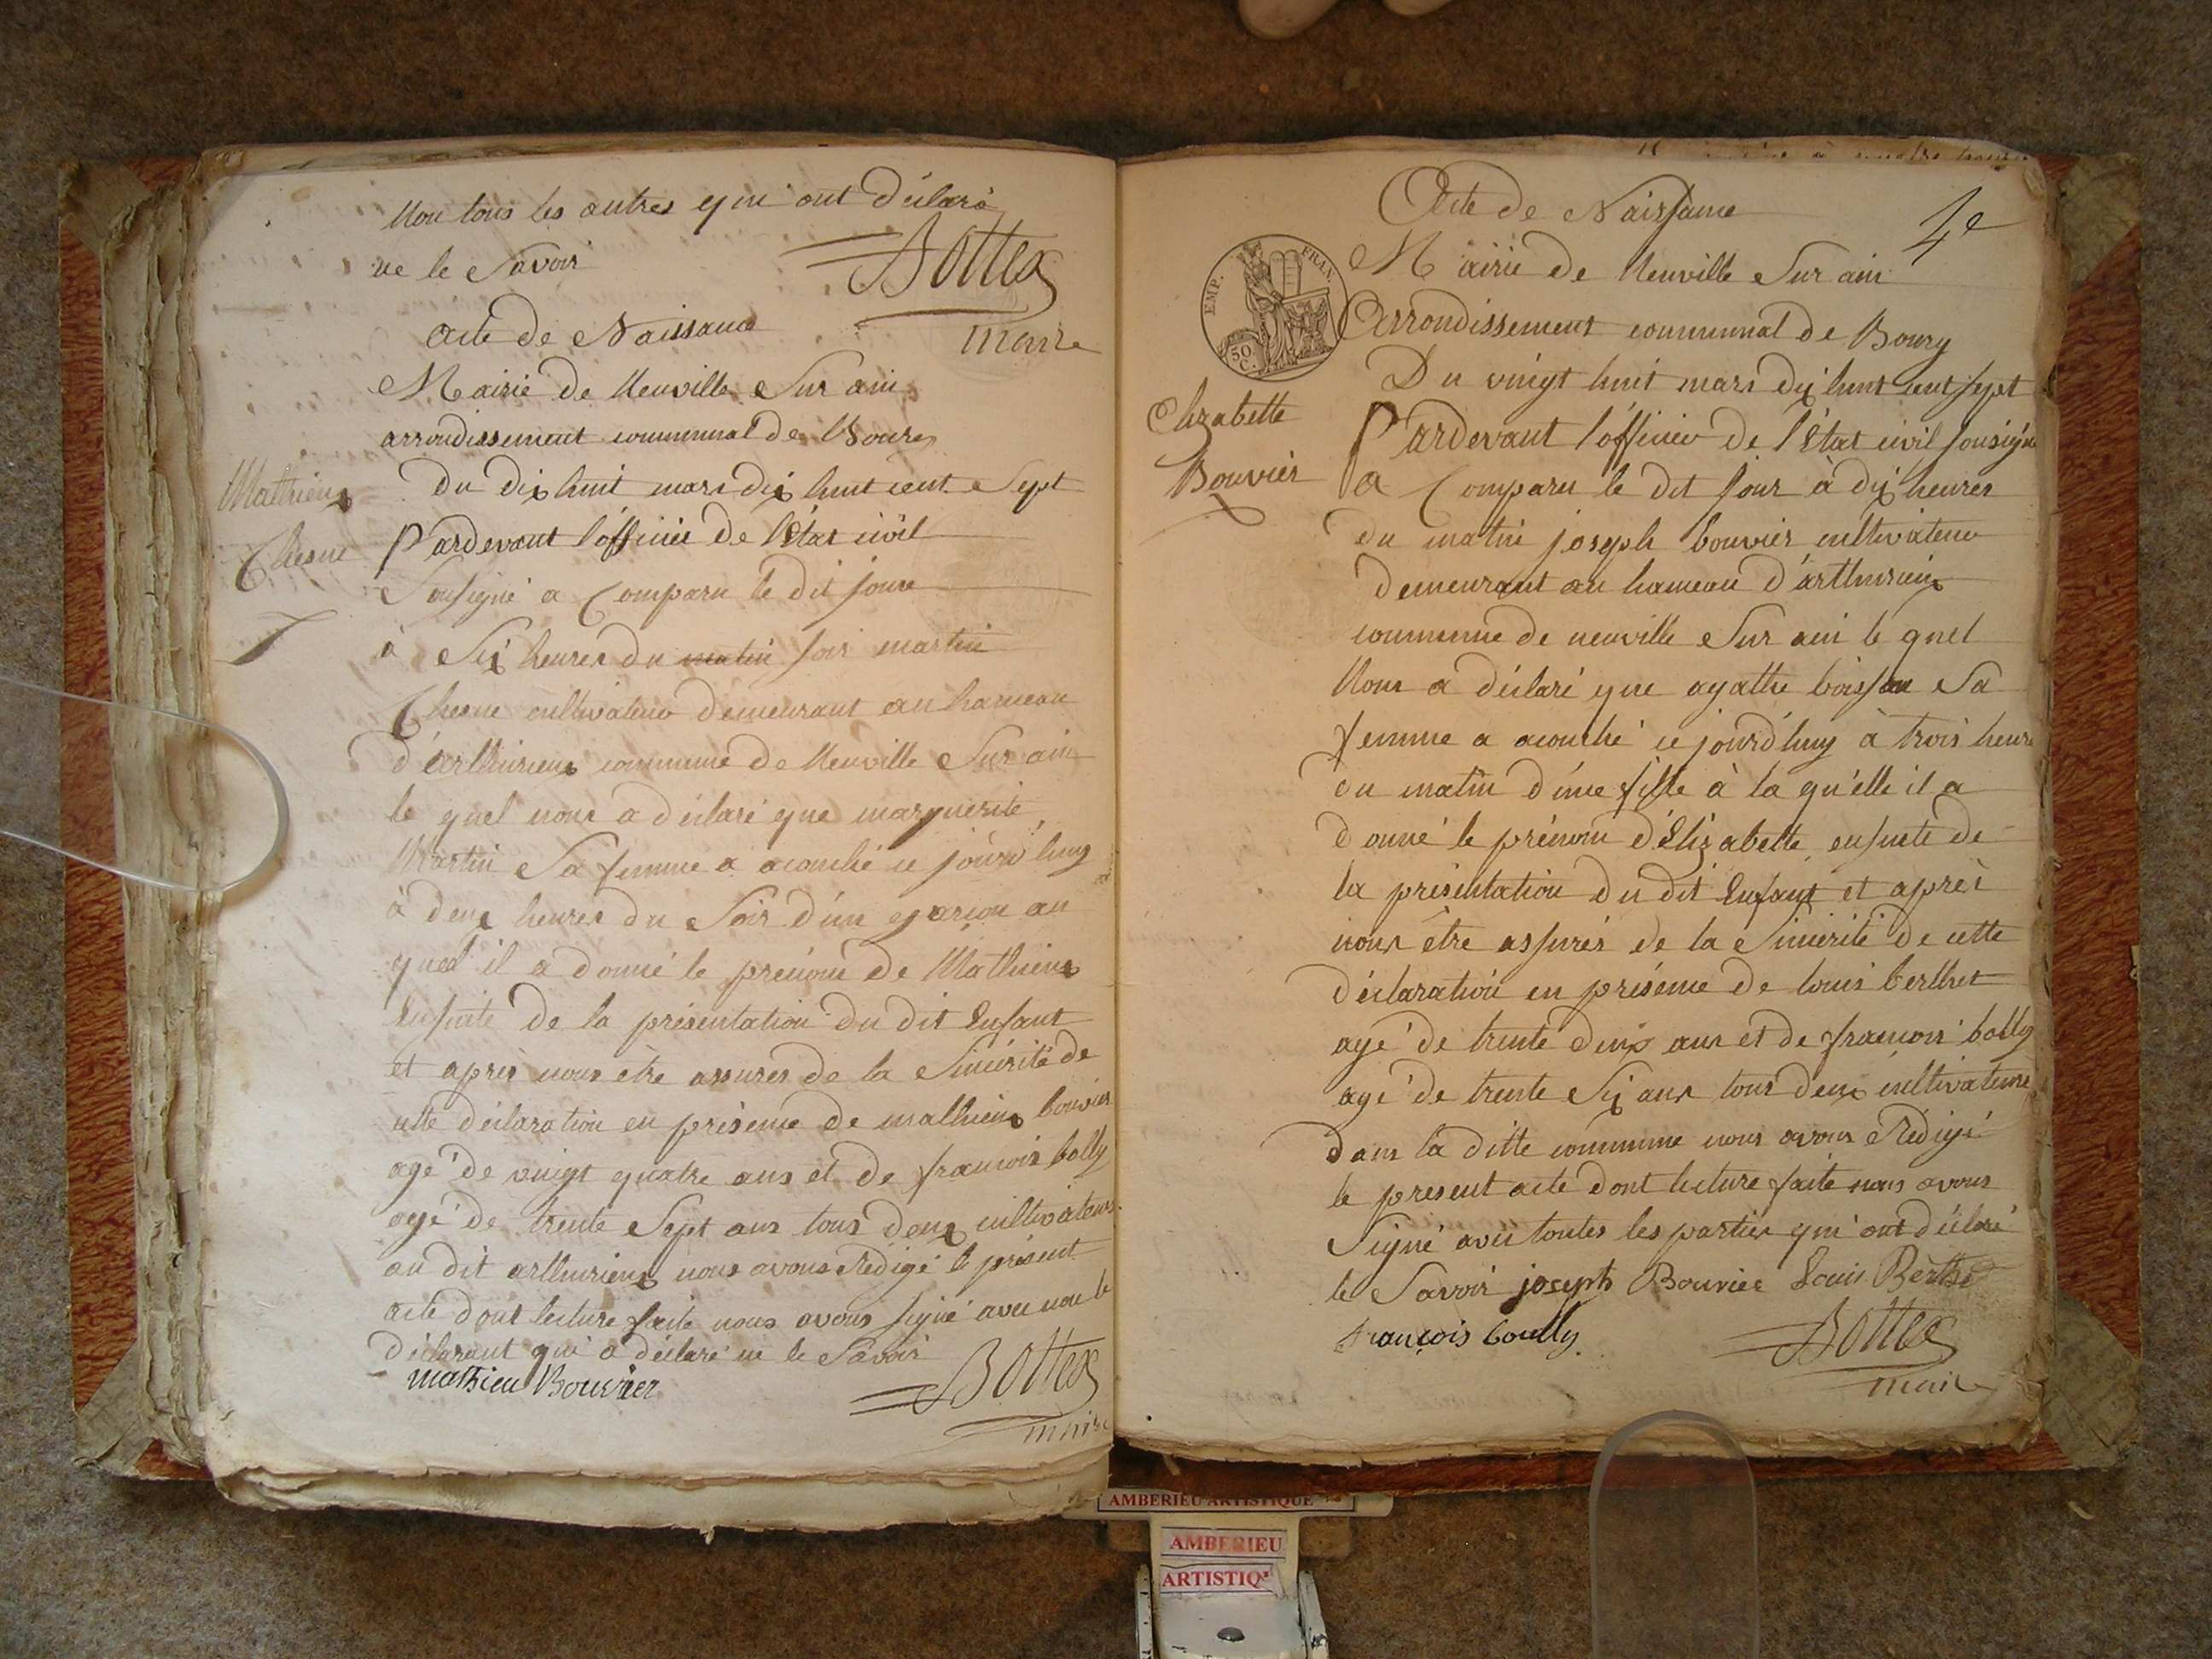 Non tous les autres qui ont déclaré
ne le Savoir
Bottex
maire
acte de Naissance
Mairie de Neuville Sur ain
arrondissement communal de Bourg
Mathieux
Chesne
Du dix huit mars dix huit cent Sept
Pardevant l'officier de l'état civil
Sousigné a Comparu le dit jour
à Six heures du matin soir martin
Chesne cultivateur demeurant au hameau
d'arthurieux commune de Neuville Sur ain
le quel nous a déclaré que marguerite
Martin Sa femme a acouché ce jourd'huy
à deux heures du Soir d'un garçon au
quel il a donné le prénom de Mathieux
Ensuite de la présentation du dit Enfant
et après nous être assurés de la Sincérité de
cette déclaration en présence de mathieux bouvier
agé de vingt quatre ans et de francois bolly
agé de trente Sept ans tous deux cultivateurs
au dit arthurieux nous avons Rédigé le présent
acte dont lecture faite nous avons signé avec non le
déclarant qui a déclaré ne le Savoir
mathieu Bouvier
Bottex
maire
4e
Acte de Naissance
Mairie de Neuville Sur ain
Arrondissement communal de Bourg
EMP. FRAN.
50 C.
Elizabette
Bouvier
Du vingt huit mars dix huit cent sept
Pardevant l'officier de l'état civil sousigné
a Comparu le dit jour à dix heures
du matin joseph bouvier cultivateur
demeurant au hameau d'arthurieux
commune de neuville Sur ain le quel
Nous a déclaré que agathe boisson Sa
femme a acouché ce jourd'huy à trois heure
du matin d'une fille à la qu'elle il a
donné le prénom d'Elizabette ensuite de
la présentation du dit Enfant et après
nous être assurés de la Sincérité de cette
déclaration en présence de louis berthet
agé de trente deux ans et de francois bolly
agé de trente Six ans tous deux cultivateurs
dans la ditte commune nous avons Rédigé
le present acte dont lecture faite nous avons
Signé avec toutes les parties qui ont déclaré
le Savoir joseph Bouvier Louis Berthet
francois boully
Bottex
maire
AMBERIEU ARTISTIQUE
AMBERIEU
ARTISTIQ